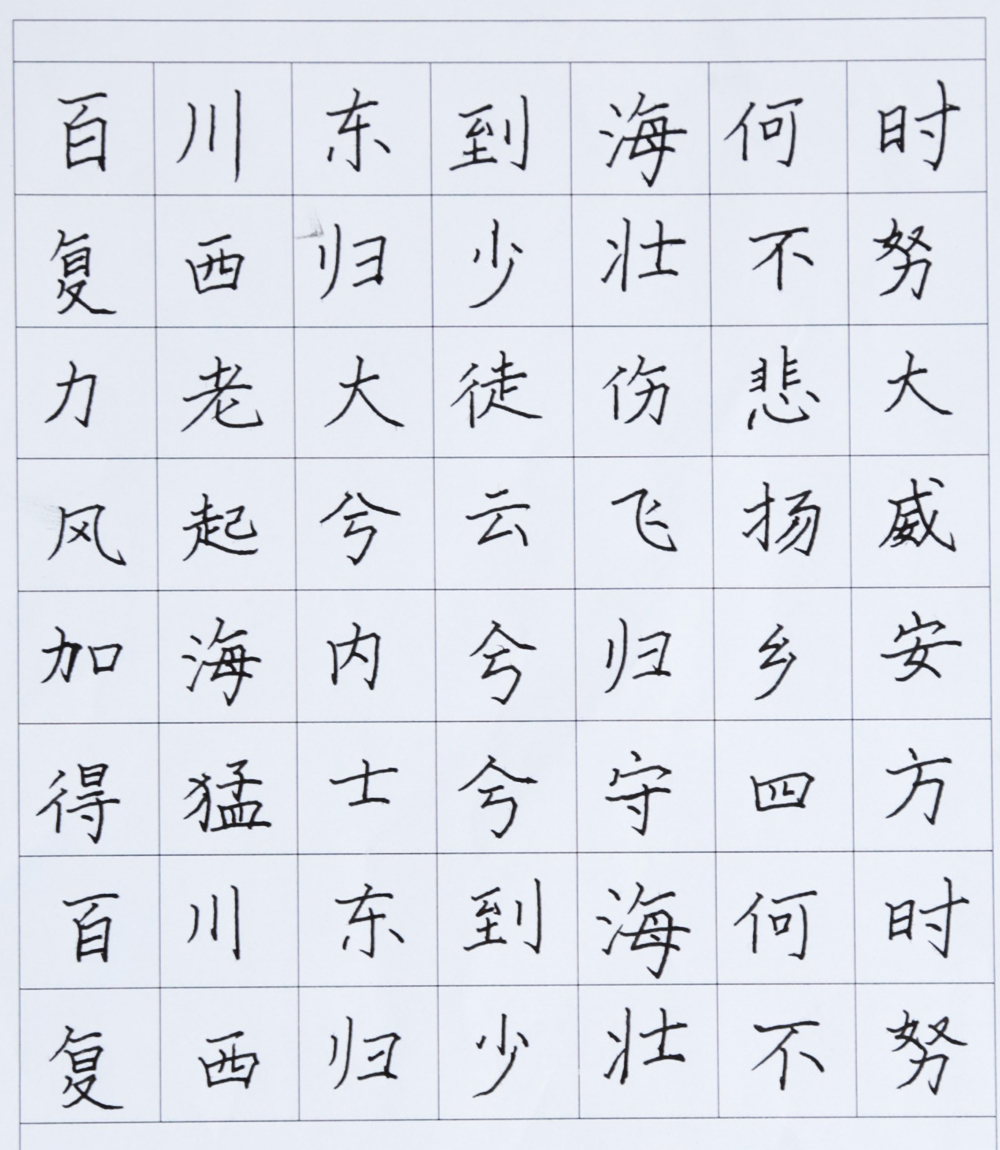 百川东到海何时
复西归少壮不努
力老大徒伤悲大
风起兮云飞扬威
加海内兮归乡安
得猛士兮守四方
百川东到海何时
复西归少壮不努